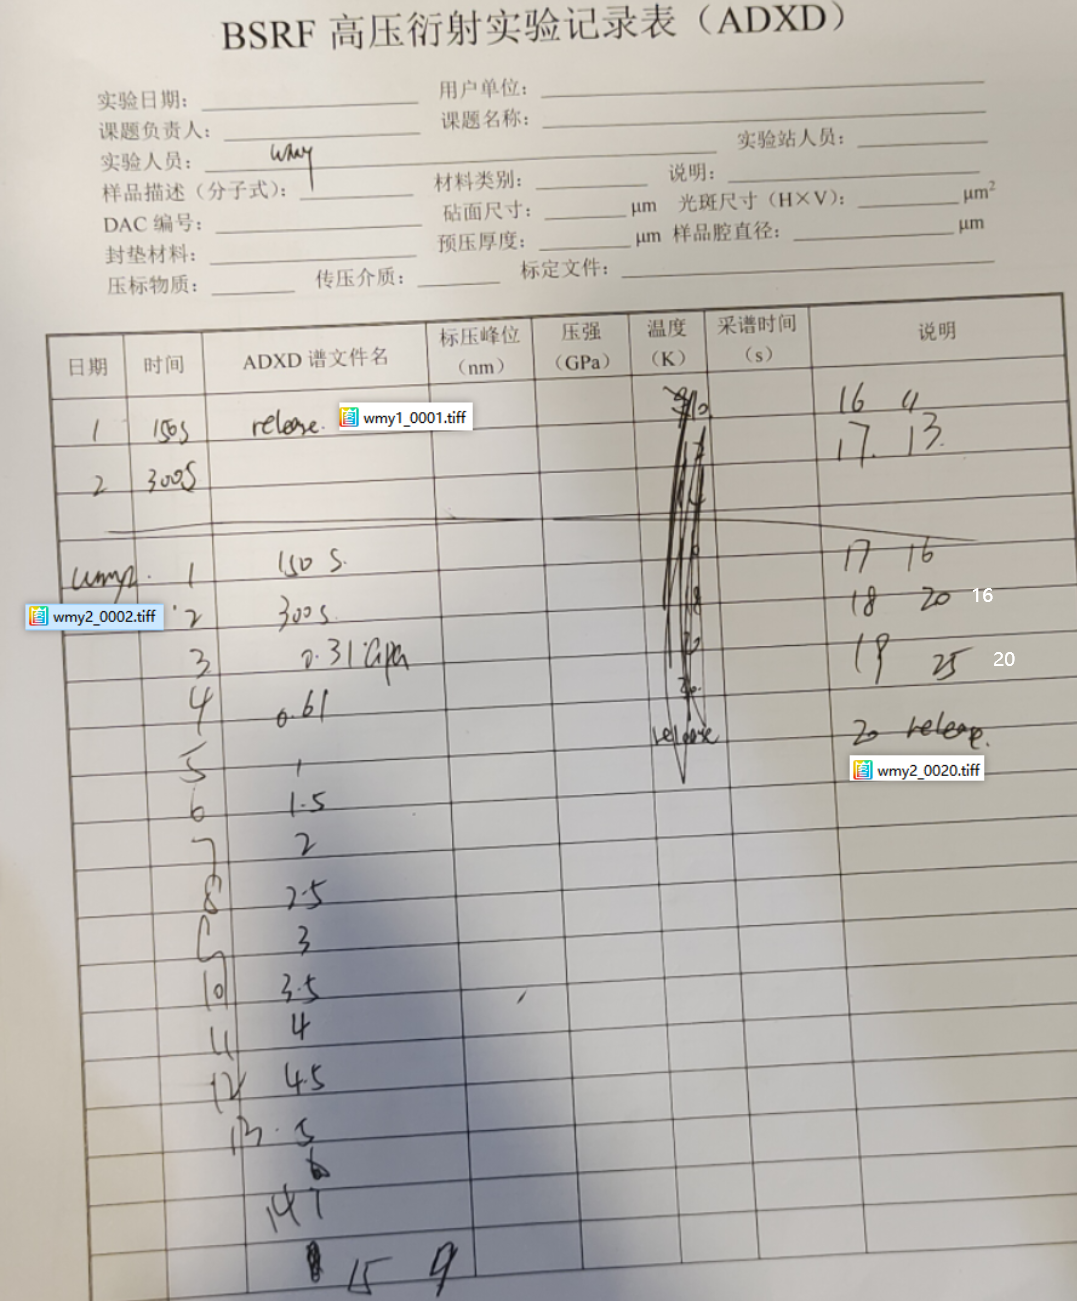 BSRF 高压衍射实验记录表（ADXD）
实验日期：
用户单位：
课题负责人：
课题名称：
实验人员： wmy
实验站人员：
样品描述（分子式）：
材料类别：
说明：
DAC 编号：
砧面尺寸： μm 光斑尺寸（H×V）： μm²
封垫材料：
预压厚度： μm 样品腔直径： μm
压标物质： 传压介质： 标定文件：
日期 时间 ADXD 谱文件名 标压峰位（nm） 压强（GPa） 温度（K） 采谱时间（s） 说明
1 150s release. wmy1_0001.tiff 16 11
2 300s 17. 13.
wmy2. 1 150 s. 17 16
wmy2_0002.tiff 2 300s. 18 20 16
3 0.31 Gpa 19 25 20
4 0.61
release 20 release.
5 1 wmy2_0020.tiff
6 1.5
7 2
8 2.5
9 3
10 3.5
11 4
12 4.5
13. 5
14 7
15 9